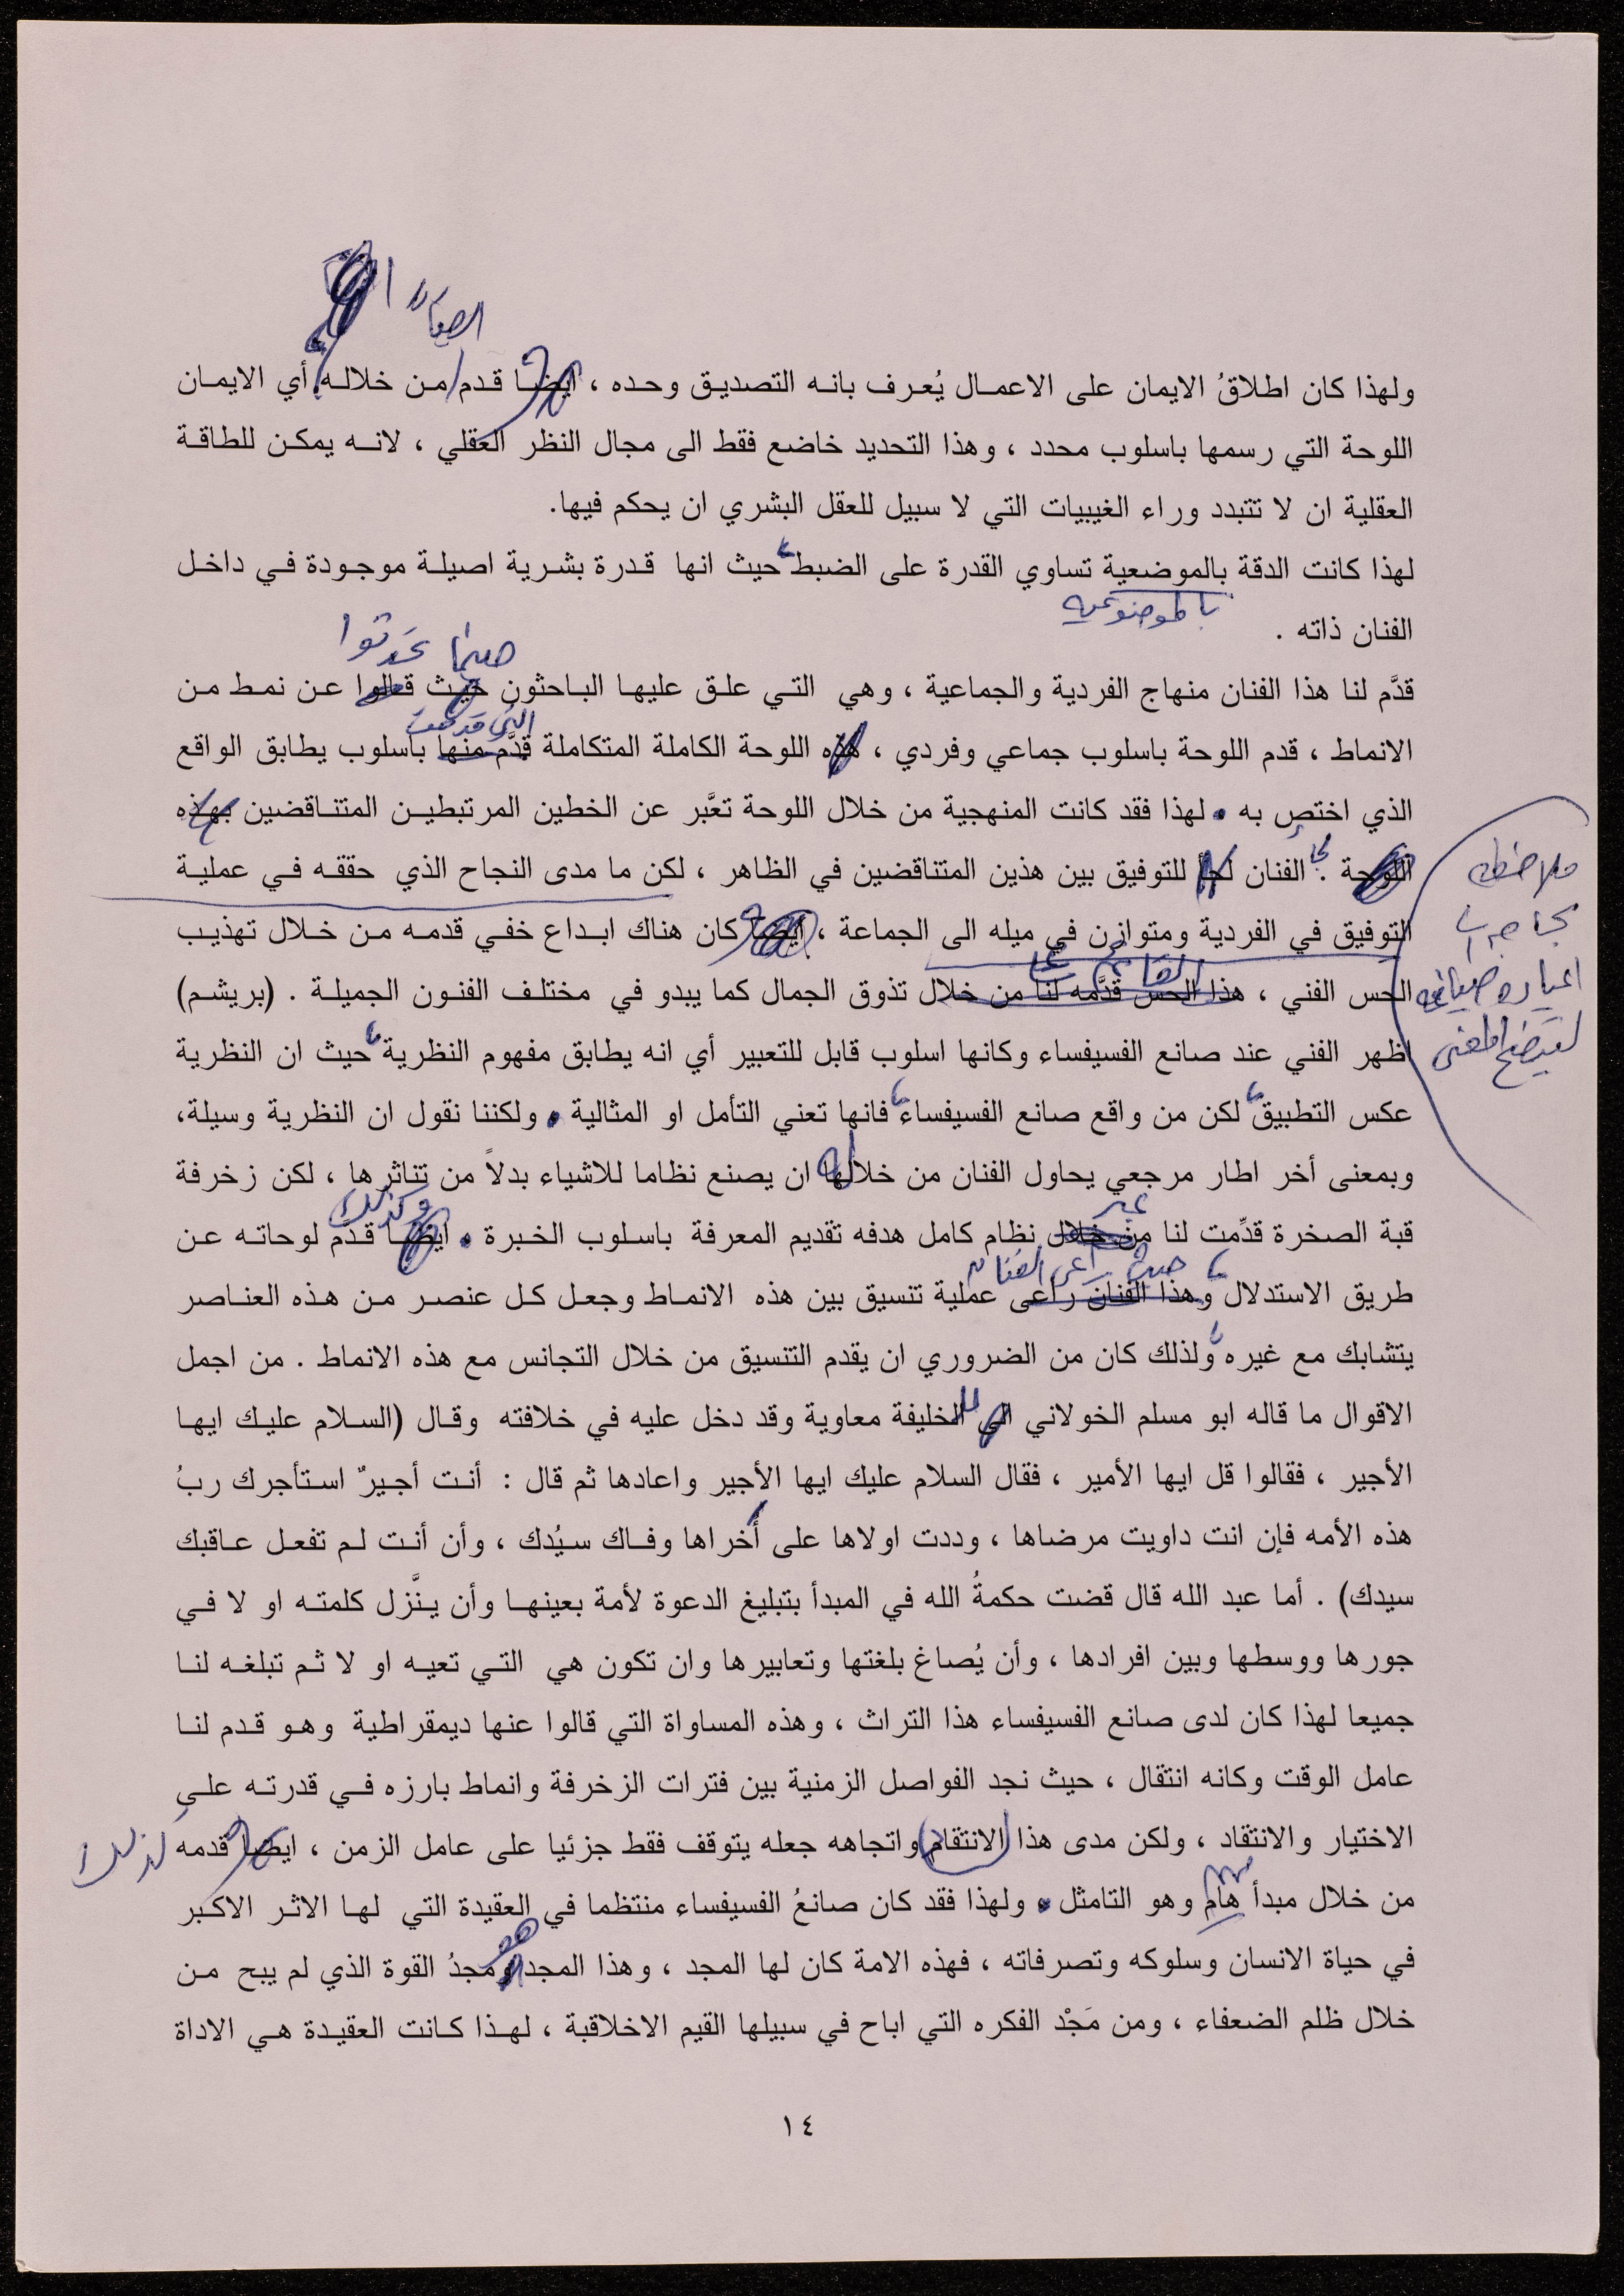 الفنان
ولهذا كان اطلاقُ الايمان على الاعمال يُعرف بانه التصديق وحده ، ايضا قدم من خلاله أي الايمان
اللوحة التي رسمها باسلوب محدد ، وهذا التحديد خاضع فقط الى مجال النظر العقلي ، لانه يمكن للطاقة
العقلية ان لا تتبدد وراء الغيبيات التي لا سبيل للعقل البشري ان يحكم فيها.
لهذا كانت الدقة بالموضعية تساوي القدرة على الضبط ، حيث انها قدرة بشرية اصيلة موجودة في داخل
بالموضوعية
الفنان ذاته .
حينما تحدثوا
قدَّم لنا هذا الفنان منهاج الفردية والجماعية ، وهي التي علق عليها الباحثون حيث قالوا عن نمط من
التي قدمت
الانماط ، قدم اللوحة باسلوب جماعي وفردي ، هذه اللوحة الكاملة المتكاملة قدَّم منها باسلوب يطابق الواقع
الذي اختص به . لهذا فقد كانت المنهجية من خلال اللوحة تعبَّر عن الخطين المرتبطين المتناقضين بهذه
اللوحة . لجأ الفنان لجأ للتوفيق بين هذين المتناقضين في الظاهر ، لكن ما مدى النجاح الذي حققه في عملية
ملاحظة
بحاجة الى
اعادة صياغة
ليتضح المعنى
التوفيق في الفردية ومتوازن في ميله الى الجماعة ، ايضا كان هناك ابداع خفي قدمه من خلال تهذيب
القائم على
الحس الفني ، هذا الحس قدَّمه لنا من خلال تذوق الجمال كما يبدو في مختلف الفنون الجميلة . (بريشم)
اظهر الفني عند صانع الفسيفساء وكانها اسلوب قابل للتعبير أي انه يطابق مفهوم النظرية ، حيث ان النظرية
عكس التطبيق ، لكن من واقع صانع الفسيفساء ، فانها تعني التأمل او المثالية . ولكننا نقول ان النظرية وسيلة،
وبمعنى أخر اطار مرجعي يحاول الفنان من خلالها ان يصنع نظاما للاشياء بدلاً من تناثرها ، لكن زخرفة
عبر وكذلك
قبة الصخرة قدِّمت لنا من خلال نظام كامل هدفه تقديم المعرفة باسلوب الخبرة . ايضا قدَّم لوحاته عن
، حيث راعى الفنان
طريق الاستدلال وهذا الفنان راعى عملية تنسيق بين هذه الانماط وجعل كل عنصر من هذه العناصر
يتشابك مع غيره ، ولذلك كان من الضروري ان يقدم التنسيق من خلال التجانس مع هذه الانماط . من اجمل
الاقوال ما قاله ابو مسلم الخولاني الى الخليفة معاوية وقد دخل عليه في خلافته وقال (السلام عليك ايها
الأجير ، فقالوا قل ايها الأمير ، فقال السلام عليك ايها الأجير واعادها ثم قال : أنت أجيرٌ استأجرك ربُ
هذه الأمه فإن انت داويت مرضاها ، وددت اولاها على أخراها وفاك سيُدك ، وأن أنت لم تفعل عاقبك
سيدك) . أما عبد الله قال قضت حكمةُ الله في المبدأ بتبليغ الدعوة لأمة بعينها وأن ينَّزل كلمته او لا في
جورها ووسطها وبين افرادها ، وأن يُصاغ بلغتها وتعابيرها وان تكون هي التي تعيه او لا ثم تبلغه لنا
جميعا لهذا كان لدى صانع الفسيفساء هذا التراث ، وهذه المساواة التي قالوا عنها ديمقراطية وهو قدم لنا
عامل الوقت وكانه انتقال ، حيث نجد الفواصل الزمنية بين فترات الزخرفة وانماط بارزه في قدرته على
الاختيار والانتقاد ، ولكن مدى هذا (الانتقام) واتجاهه جعله يتوقف فقط جزئيا على عامل الزمن ، ايضا قدمه كذلك
من خلال مبدأ هام وهو التامثل . ولهذا فقد كان صانعُ الفسيفساء منتظما في العقيدة التي لها الاثر الاكبر
هو
في حياة الانسان وسلوكه وتصرفاته ، فهذه الامة كان لها المجد ، وهذا المجد ومجدُ القوة الذي لم يبح من
خلال ظلم الضعفاء ، ومن مَجْد الفكره التي اباح في سبيلها القيم الاخلاقبة ، لهذا كانت العقيدة هي الاداة
١٤